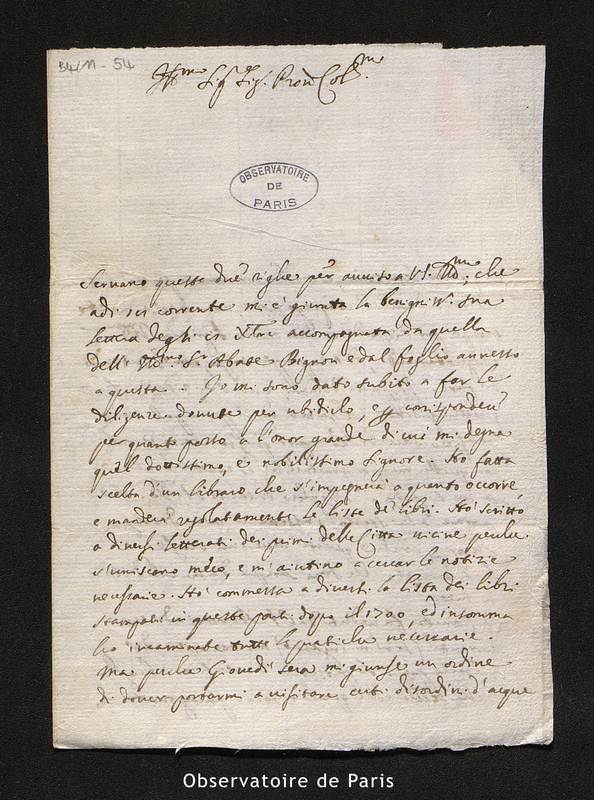 B4/11 - 54
Ill.mo Sig.r Sig.r Pron Col.mo
OBSERVATOIRE
DE
PARIS
Servano queste due righe per avviso a VS. Ill.ma, che
adi sei corrente mi è giunta la benignis. sua
lettera degli 9bre accompagnata da quella
dell' Ill.mo Sr Abate Bignon e dal foglio annesso
a questa. Io mi sono dato subito a far le
diligenze dovute per ubidirlo, e corrisponder
per quanto posso a l'onor grande di cui mi degna
quel dottissimo, e nobilissimo Signore. Hò fatta
scelta d'un libraro che s'impegnerà a quanto occorre,
e manderà regolatamente le liste de' libri. Hò scritto
a diversi letterati dei primi delle Città vicine perche
s'uniscano meco, e mi aiutino a cercar le notizie
necessarie. Hò commessa a diversi la lista dei libri
stampati in queste parti dopo il 1700, ed insomma
ho incaminate tutte le pratiche necessarie.
Ma perche Giovedi sera mi giunse un ordine
di dover portarmi a visitare certi disordini d'acque
Observatoire de Paris